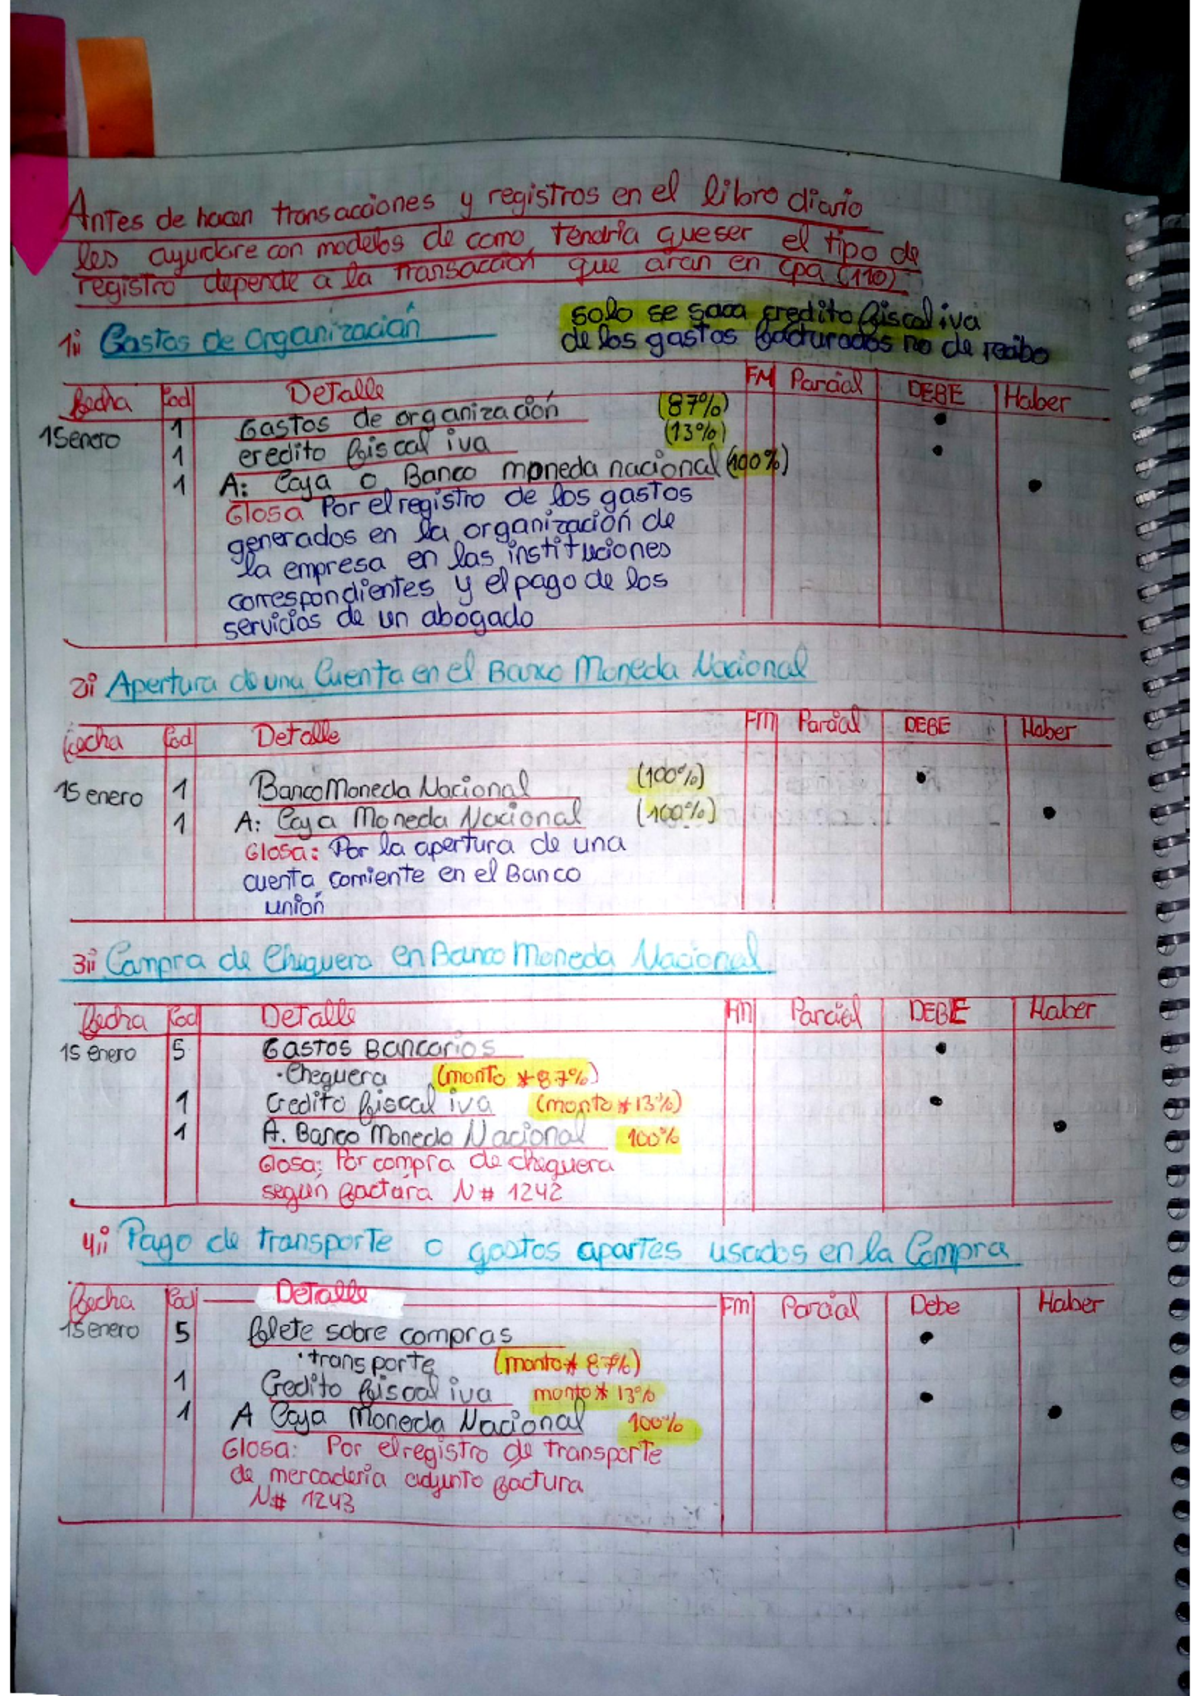 Antes de hacen transacciones y registros en el libro diario
les ayudare con modelos de como tendria que ser el tipo de
registro depende a la transacción que aran en cpa (110)
solo se saca credito fiscal iva
de los gastos facturados no de recibo
1ii Gastos de organización
fecha Cod Detalle FM Parcial DEBE Haber
15enero 1 Gastos de organización (87%) •
1 credito fiscal iva (13%) •
1 A: Caja o Banco moneda nacional (100%) •
Glosa Por el registro de los gastos
generados en la organización de
la empresa en las instituciones
correspondientes y el pago de los
servicios de un abogado
2ii Apertura de una Cuenta en el Banco Moneda Nacional
fecha Cod Detalle FM Parcial DEBE Haber
15 enero 1 Banco Moneda Nacional (100%) •
1 A: Caja Moneda Nacional (100%) •
Glosa: Por la apertura de una
cuenta corriente en el Banco
unión
3ii Compra de Chequera en Banco Moneda Nacional
fecha Cod Detalle FM Parcial DEBE Haber
15 enero 5 Gastos Bancarios •
• Chequera (monto * 87%)
1 Credito fiscal iva (monto * 13%) •
1 A. Banco Moneda Nacional 100% •
Glosa: Por compra de chequera
según factura N# 1242
4ii Pago de transporte o gastos apartes usados en la Compra
fecha Cod Detalle FM Parcial Debe Haber
15enero 5 folete sobre compras •
• transporte (monto * 87%)
1 Credito fiscal iva monto * 13% •
1 A Caja Moneda Nacional 100% •
Glosa: Por el registro de transporte
de mercaderia adjunto factura
N# 1243